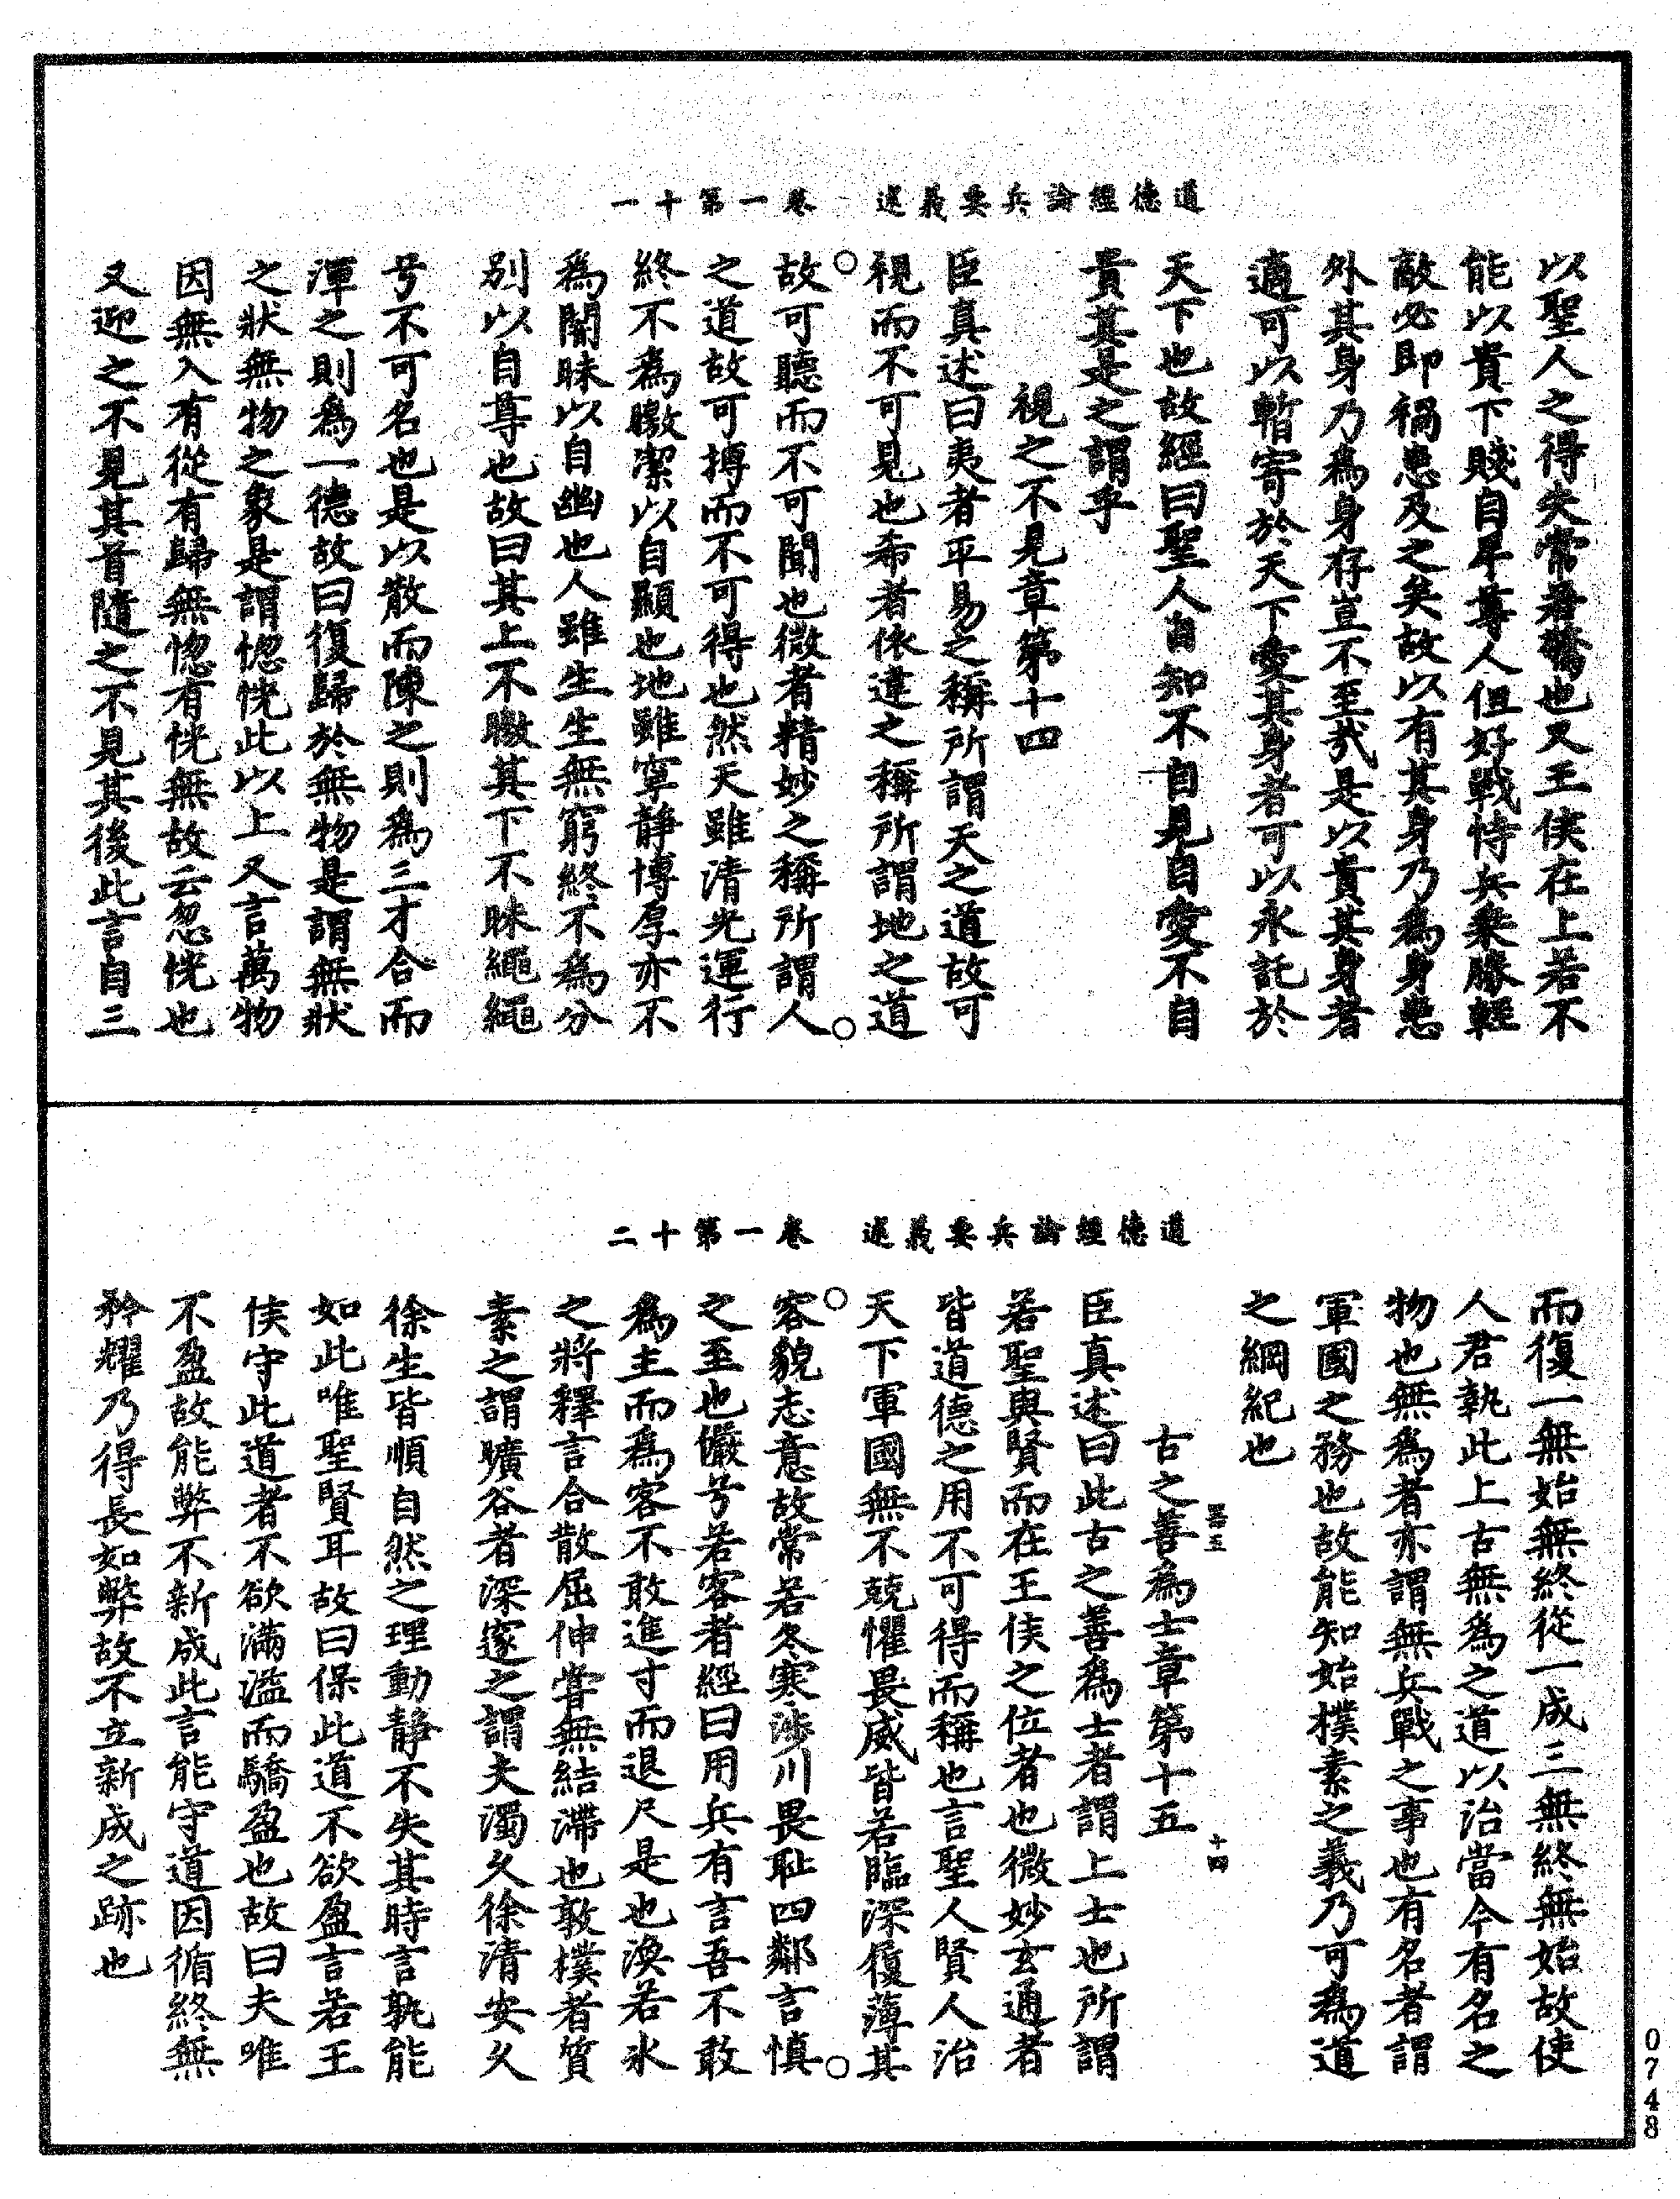 道德經論兵要義述　卷一第十一
以聖人之得失常若驚也又王侯在上若不
能以貴下賤自卑尊人但好戰恃兵乘勝輕
敵必即禍患及之矣故以有其身乃為身患
外其身乃為身存豈不至哉是以貴其身者
適可以暫寄於天下愛其身者可以永託於
天下也故經曰聖人自知不自見自愛不自
貴其是之謂乎
視之不見章第十四
臣真述曰夷者平易之稱所謂天之道故可
視而不可見也希者依違之稱所謂地之道
故可聽而不可聞也微者精妙之稱所謂人
之道故可摶而不可得也然天雖清光運行
終不為曒潔以自顯也地雖寧静博厚亦不
為闇昧以自幽也人雖生生無窮終不為分
別以自尊也故曰其上不曒其下不昧繩繩
兮不可名也是以散而陳之則為三才合而
渾之則為一德故曰復歸於無物是謂無狀
之狀無物之象是謂惚恍此以上又言萬物
因無入有從有歸無惚有恍無故云忽恍也
又迎之不見其首隨之不見其後此言自三
道德經論兵要義述　卷一第十二
而復一無始無終從一成三無終無始故使
人君執此上古無為之道以治當今有名之
物也無為者亦謂無兵戰之事也有名者謂
軍國之務也故能知始樸素之義乃可為道
之綱紀也
古之善為士章第十五
臣真述曰此古之善為士者謂上士也所謂
若聖與賢而在王侯之位者也微妙玄通者
皆道德之用不可得而稱也言聖人賢人治
天下軍國無不兢懼畏威皆若臨深履薄其
容貌志意故常若冬寒涉川畏耻四鄰言慎
之至也儼兮若客者經曰用兵有言吾不敢
為主而為客不敢進寸而退尺是也渙若氷
之將釋言合散屈伸嘗無結滯也敦樸者質
素之謂曠谷者深邃之謂夫濁久徐清安久
徐生皆順自然之理動静不失其時言孰能
如此唯聖賢耳故曰保此道不欲盈言若王
侯守此道者不欲滿溢而驕盈也故曰夫唯
不盈故能弊不新成此言能守道因循終無
矜耀乃得長如弊故不立新成之跡也
十四
0748